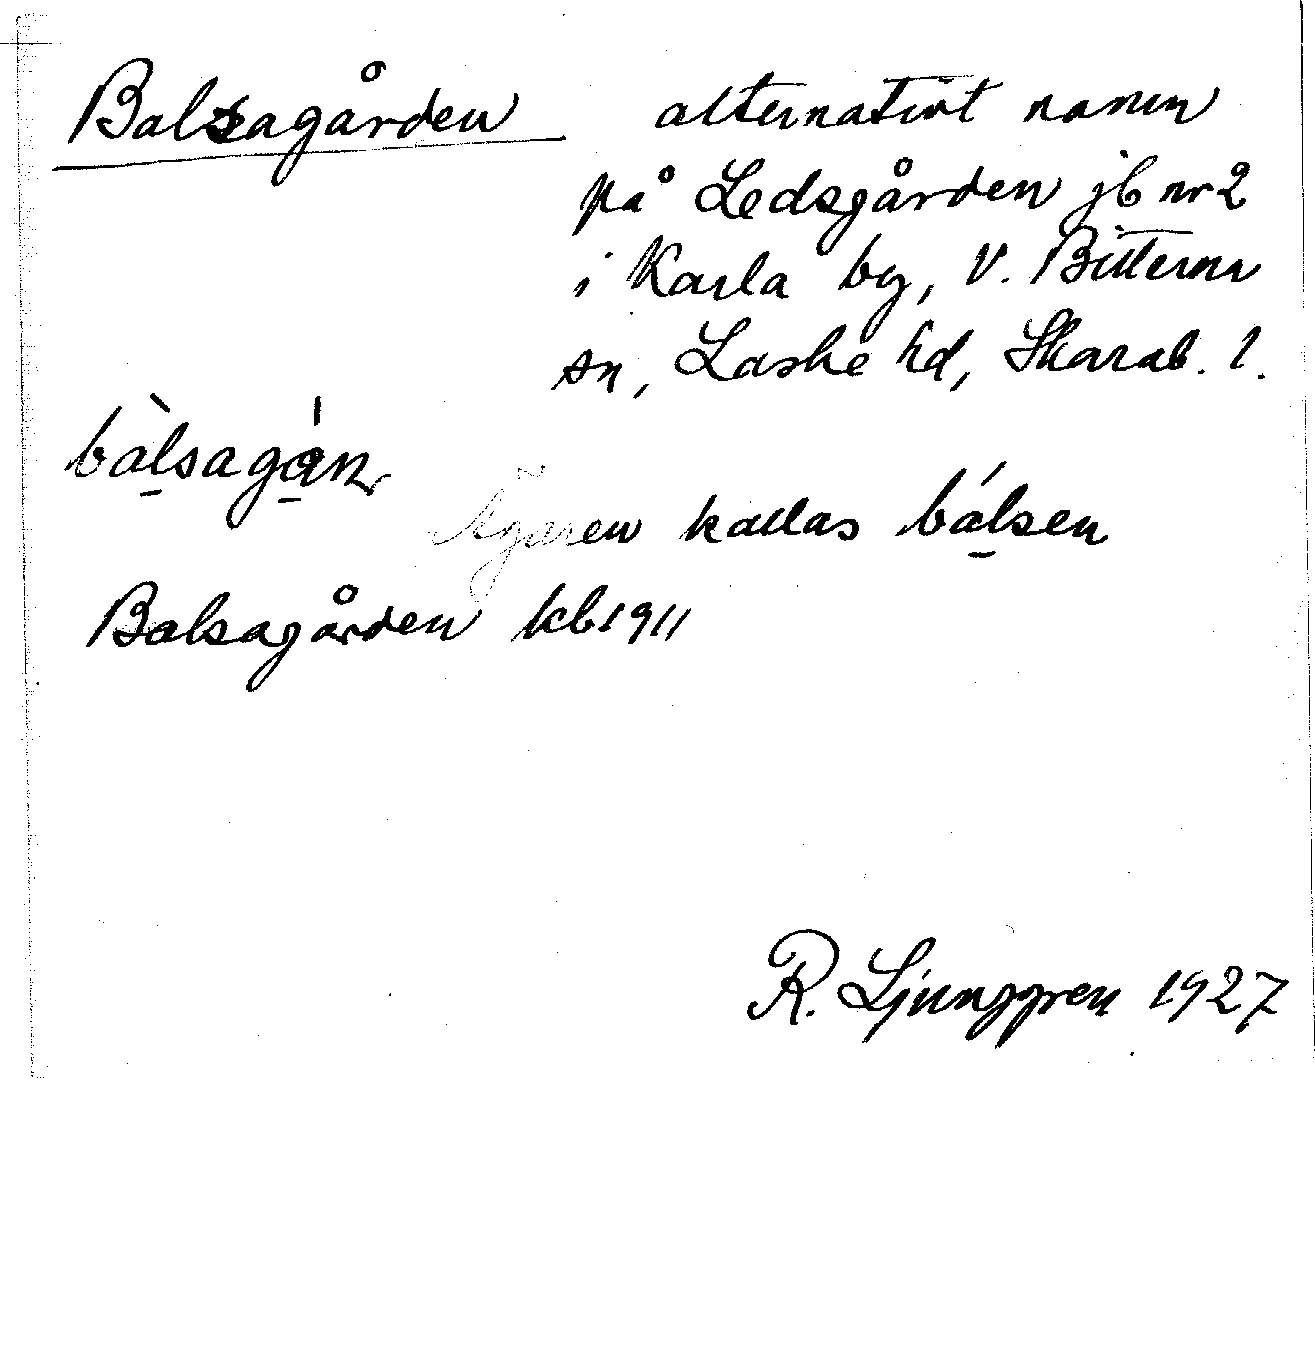 Balsagården alternativt namn
på Ledsgården jb nr 2
i Karla by, V. Bitterna
sn, Laske hd, Skarab. l.
bàlsagán
Ägaren kallas bálsen
Balsagården kb 1911
R. Ljunggren 1927